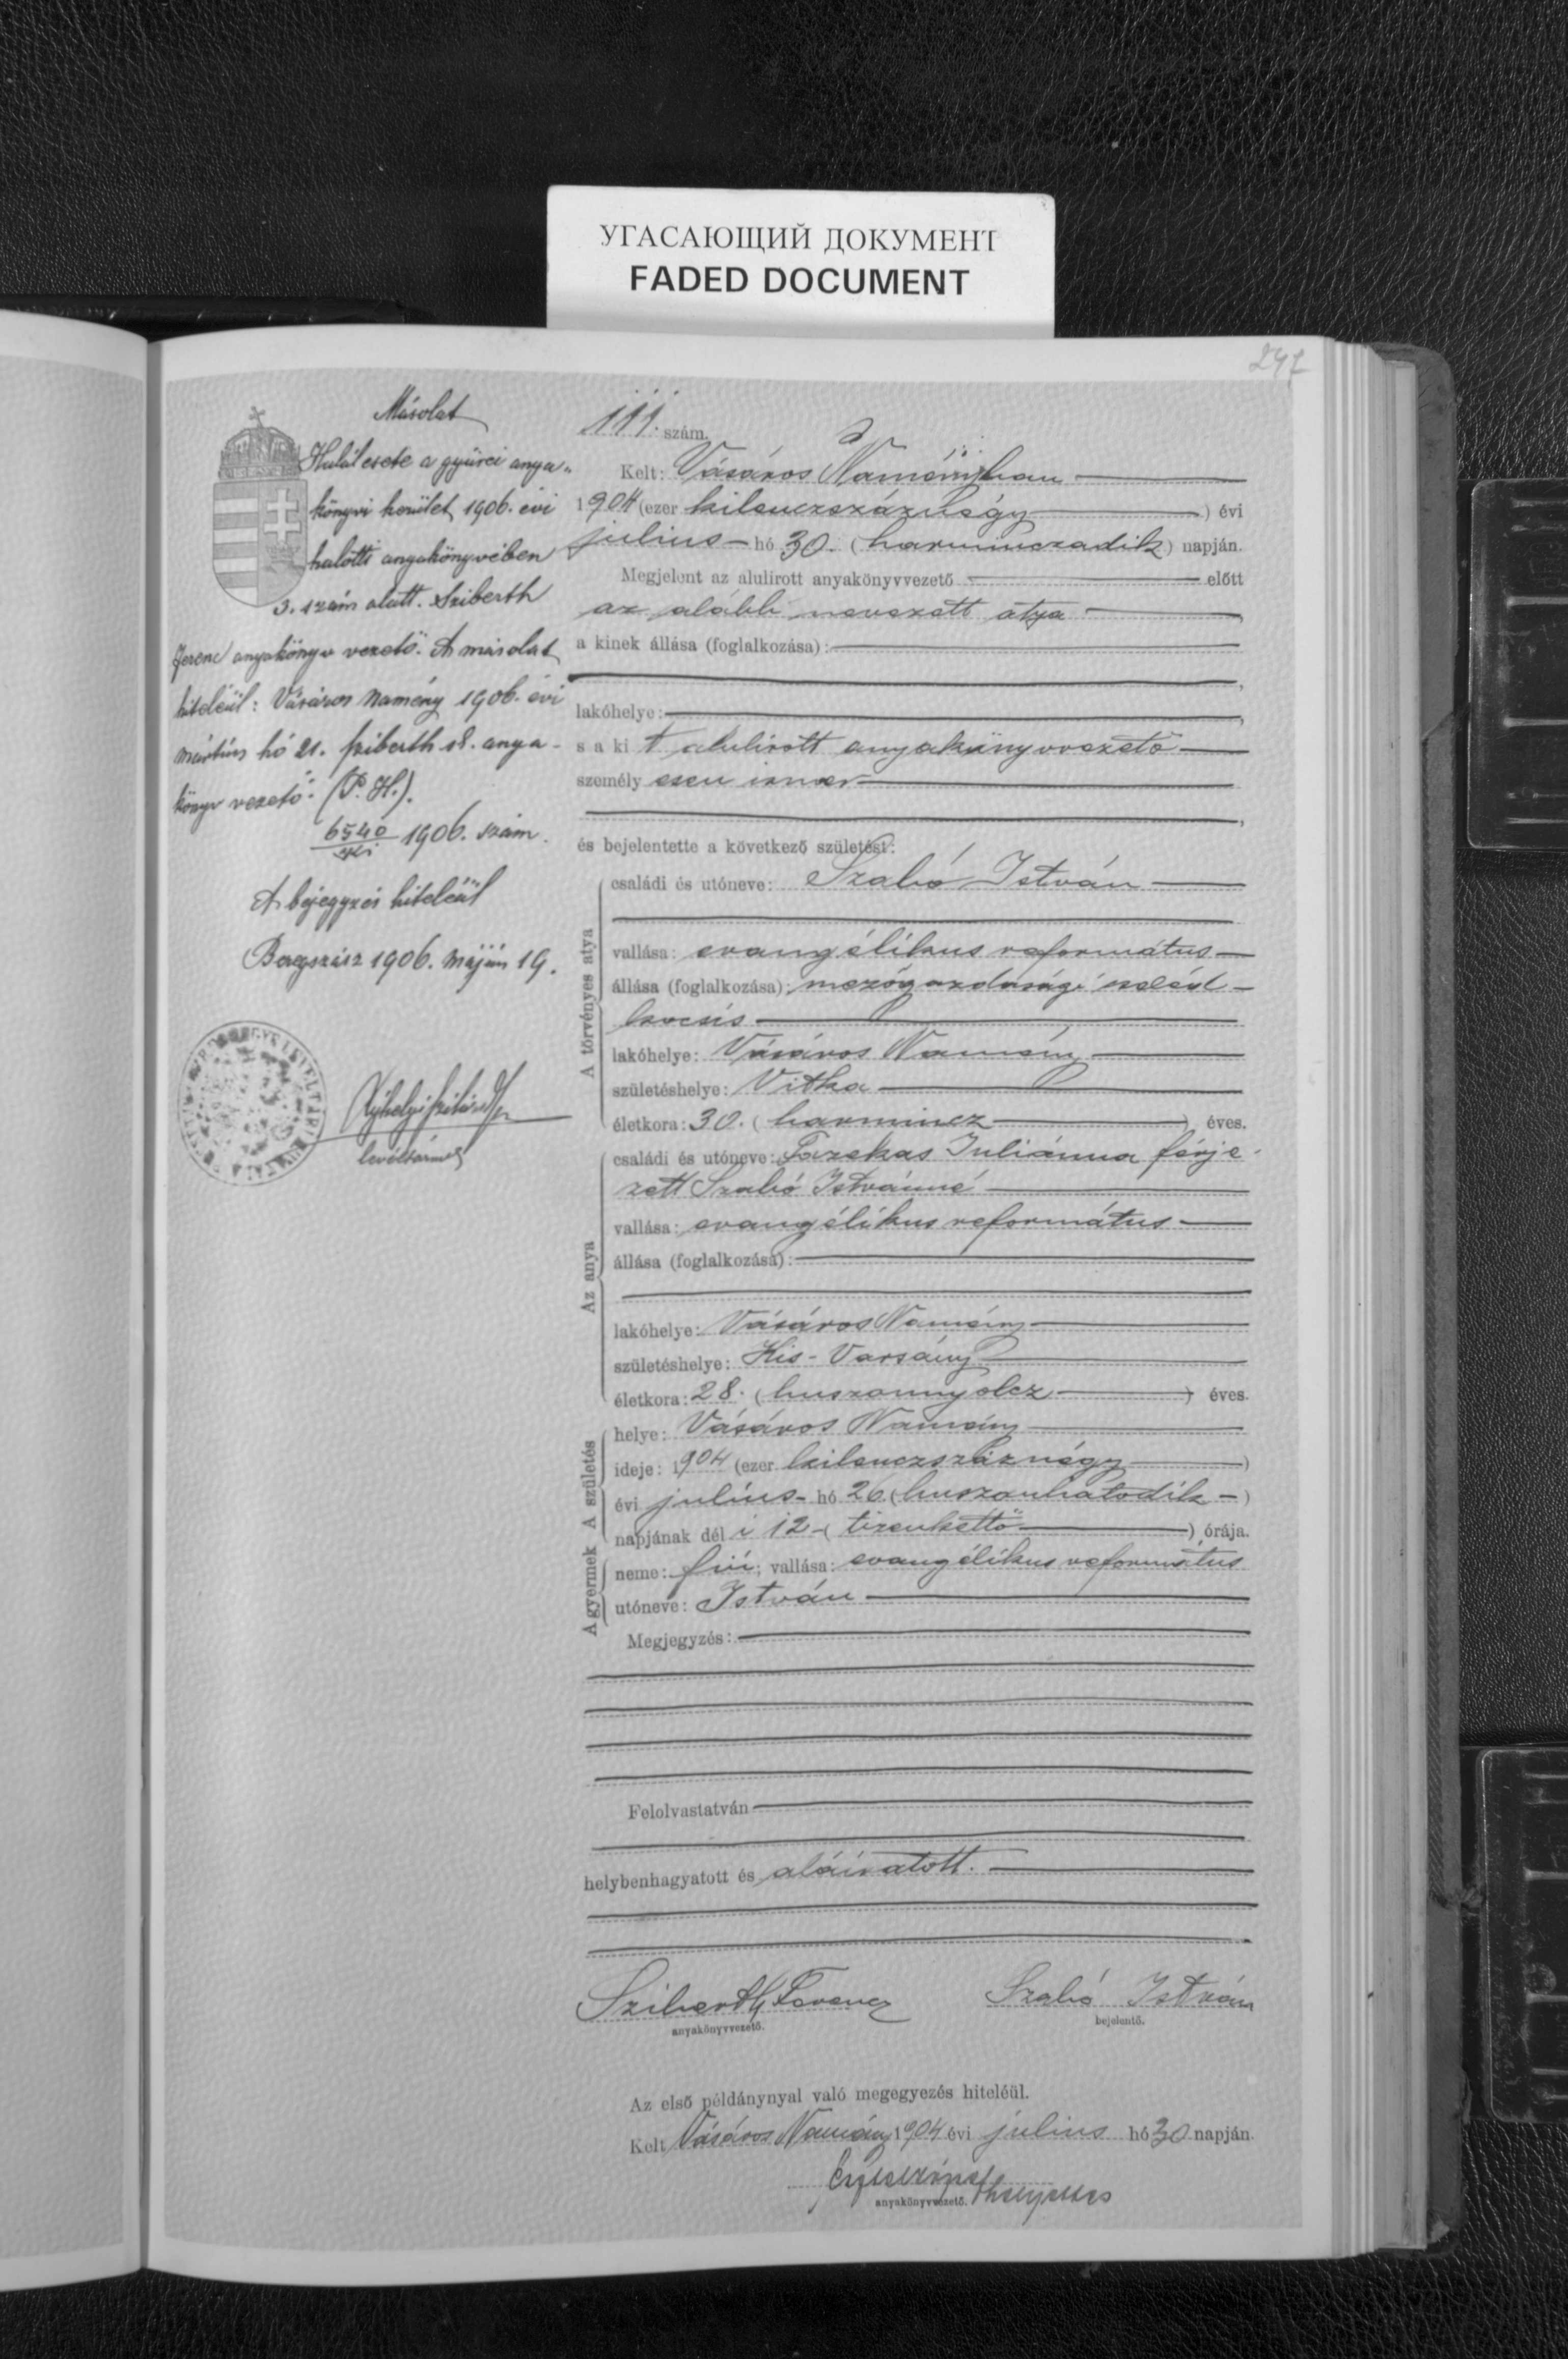 УГАСАЮЩИЙ ДОКУМЕНТ
FADED DOCUMENT
247
Másolat
Halálesete a gyürei anya-
könyvi kerület 1906. évi
halotti anyakönyvében
3. szám alatt. Sziberth
Ferenc anyakönyv vezető. A másolat
hiteléül: Vásáros Namény 1906. évi
március hó 21. Sziberth s.k. anya-
könyv vezető. (P. H.).
6540 1906. szám.
A bejegyzés hiteléül
Beregszász 1906. május 19.
levéltárnok
111. szám.
Kelt: Vásáros Naményban
1904 (ezer kilenczszáznégy ) évi
julius hó 30. (harminczadik) napján.
Megjelent az alulirott anyakönyvvezető előtt
az alább nevezett atya
a kinek állása (foglalkozása):
lakóhelye:
s a ki t alulirott anyakönyvvezető
személy esen ismer
és bejelentette a következő születést:
A törvényes atya
családi és utóneve: Szabó István
vallása: evangélikus református
állása (foglalkozása): mezőgazdasági cseléd
kocsis
lakóhelye: Vásáros Namény
születéshelye: Vitka
életkora: 30. (harmincz ) éves.
Az anya
családi és utóneve: Fazekas Juliánna férje-
zett Szabó Istvánné
vallása: evangélikus református
állása (foglalkozása):
lakóhelye: Vásáros Namény
születéshelye: Kis-Varsány
életkora: 28. (huszonnyolcz ) éves.
A gyermek A születés
helye: Vásáros Namény
ideje: 1904 (ezer kilenczszáznégy )
évi julius hó 26. (huszonhatodik )
napjának dél i 12 (tizenkettő ) órája.
neme: fiú; vallása: evangélikus református
utóneve: István
Megjegyzés:
Felolvastatván
helybenhagyatott és aláiratott.
Sziberth Ferencz Szabó István
anyakönyvvezető. bejelentő.
Az első példánynyal való megegyezés hiteléül.
Kelt Vásáros Namény 1904 évi julius hó 30 napján.
anyakönyvvezető. helyettes